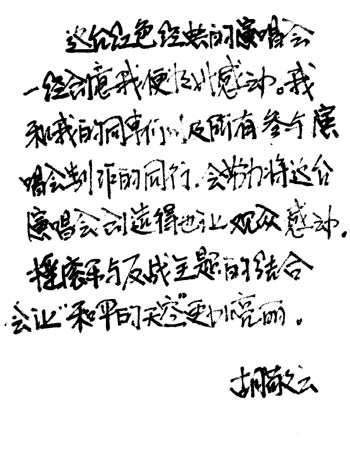 这台红色经典的演唱会
一经创意我便深感感动。我
和我的同事们以及所有参与演
唱会制作的同行，会努力将这台
演唱会创造得也让观众感动。
摇滚乐与反战主题的结合
会让“和平的天空”更加亮丽。